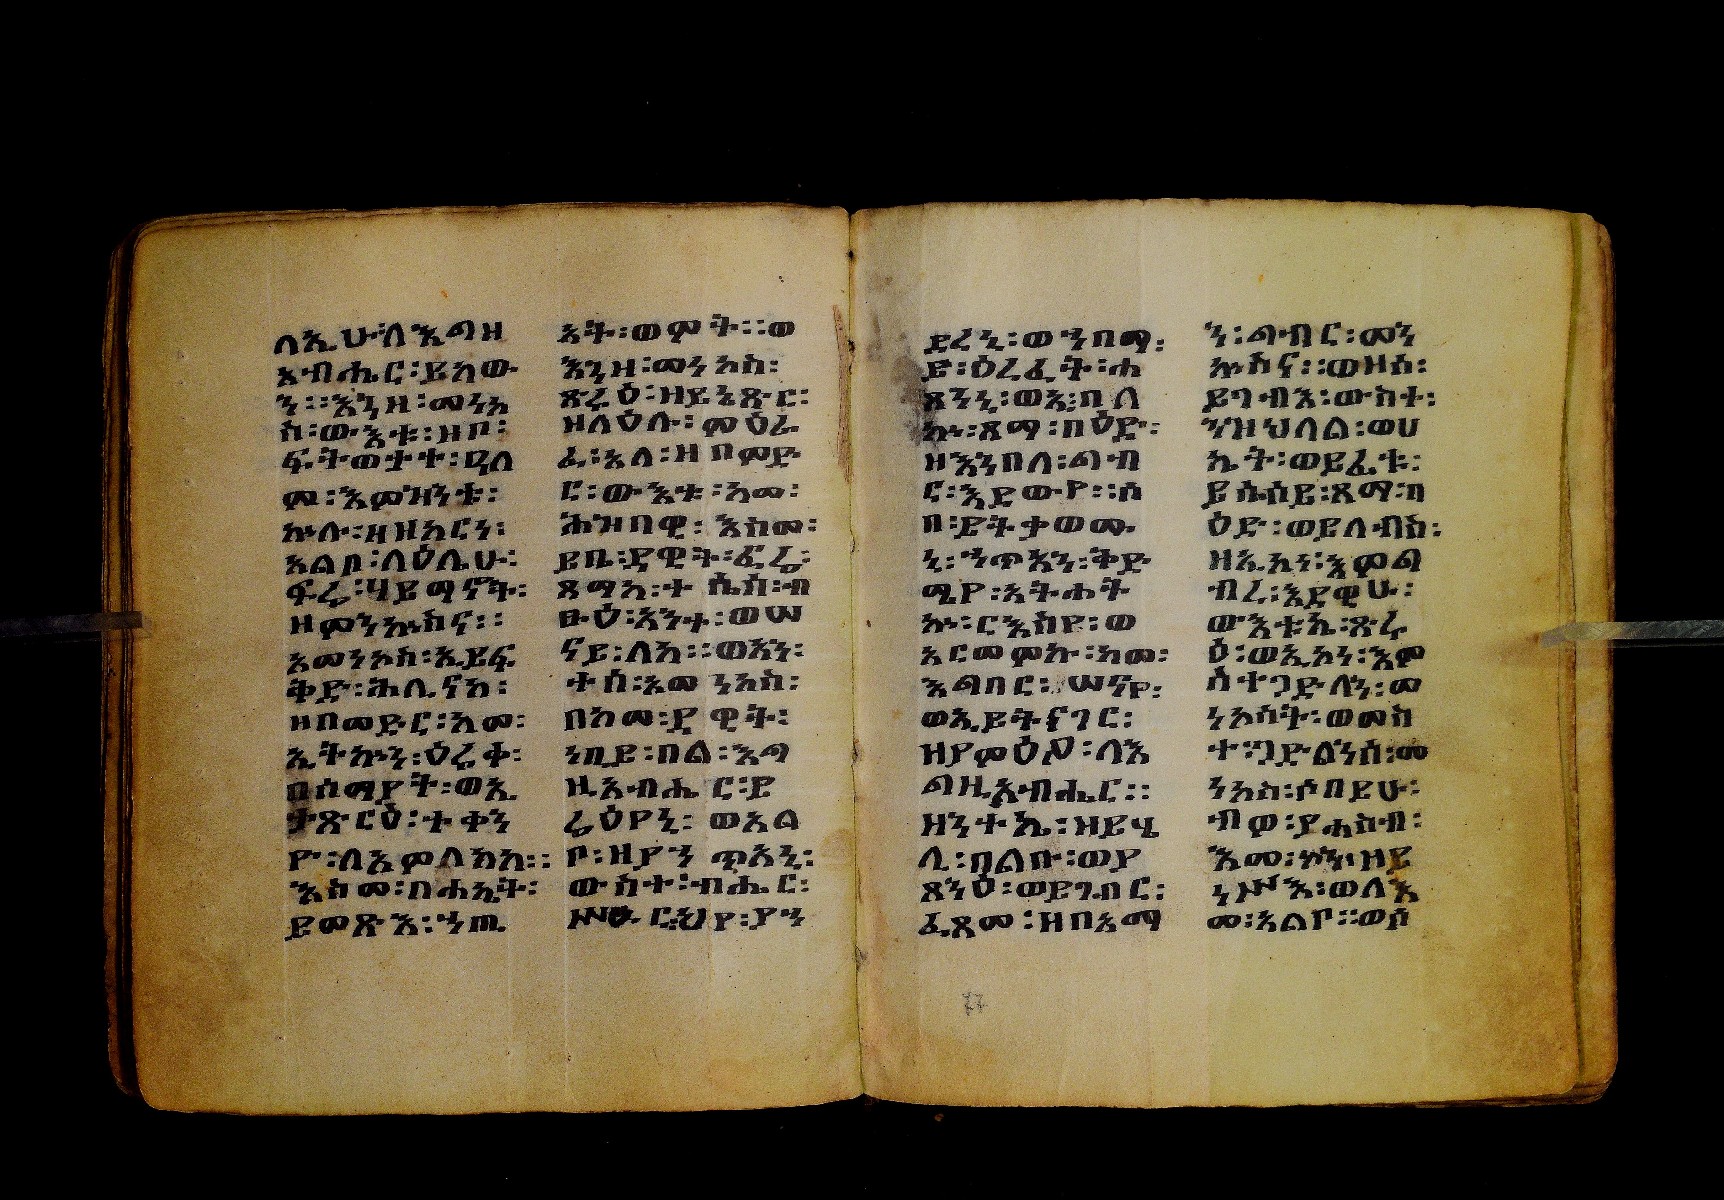 ለኢሁ፡ለእግዘ
አብሔር፡ይአው
ን፡፡እንዘ፡መነአ
ሰ፡ውእቱ፡ዘበ፡
ፍትወታተ፡ዒለ
መ፡እምዝንቱ፡
ኵሉ፡ዘዘአርን፡
አልቦ፡ለዕሌሁ፡
ፍሬ፡ሃይማኖት፡
ዘምንኵስና፡፡
እመንኦሰ፡ኢይፍ
ቅድ፡ሕሊናከ፡
ዘበመድር፡አመ፡
ኢትኵን፡ዕሩቀ፡
በሰማያት፡ወኢ
ታጽርዕ፡ተቀን
ዮ፡ለአምላክከ፡፡
እስመ፡በሐኒት፡
ይመጽእ፡ኀጢ
አት፡ወሞት፡፡ወ
እንዘ፡መነኦስ፡
ጽሩዕ፡ዘይኔጽር፡
ዘላዕሉ፡መዕራ
ፊ፡አላ፡ዘበምድ
ር፡ውእቱ፡አመ፡
ሕዝበዊ፡እስመ፡
ይቤ፡ዳዊት፡ፈሪ
ጸማአ፡ተሴሰ፡ብ
ፁዕ፡አንተ፡ወሠ
ናይ፡ለከ፡፡ወአን፡
ተሰ፡አመነኦስ፡
በከመ፡ዳዊት፡
ነቢይ፡በል፡እግ
ዚአብሔር፡ይ
ሬዕየኒ፡ወአል
ቦ፡ዘያኀጥአኒ፡
ውስተ፡ብሔር፡
ሥዑር፡ህየ፡ያኀ
ድረኒ፡ወኀበማ፡
ይ፡ዕረፍት፡ሐ
ጸንኒ፡ወእ፡በለ
ኵ፡ጸማ፡በዕድ፡
ዘእንበለ፡ግብ
ር፡እደውየ፡፡ሰ
በ፡ይትታወሙ
ኒ፡ኀጥአን፡ቅድ
ሜየ፡አትሐት
ኵ፡ርእስየ፡ወ
አርመምኩ፡ከመ፡
እግበር፡ሠናየ፡
ወኢይትናገር፡
ዘያመዕዖ፡ለእ
ግዚአብሔር፡፡
ዘንተኒ፡ዘይሄ
ሊ፡በልቡ፡ወያ
ጸንዕ፡ወይገብር፡
ፈጸመ፡ዘበአማ
ን፡ግብር፡መን
ኵስና፡፡ወዘሰ፡
ይገብእ፡ውስተ፡
ንዝህላል፡ወሀ
ኬት፡ወይፈቱ፡
ይሴሰይ፡ጸማ፡በ
ዕድ፡ወይለብስ፡
ዘኢአነ፡እምግ
ብረ፡እደዊሁ፡
ውእቱኒ፡ጽሩ
ዕ፡ወኢኦነ፡እም
ሰተጋድላን፡መ
ነኦሳት፡ወመስ
ተ፡ጋድልንሰ፡መ
ነኦስ፡ሶበይሁ፡
ብዎ፡ያሐስብ፡
እመ፡ኮኑ፡ዘይ
ነሥእ፡ወለእ
መ፡አልቦ፡፡ወሰ
77